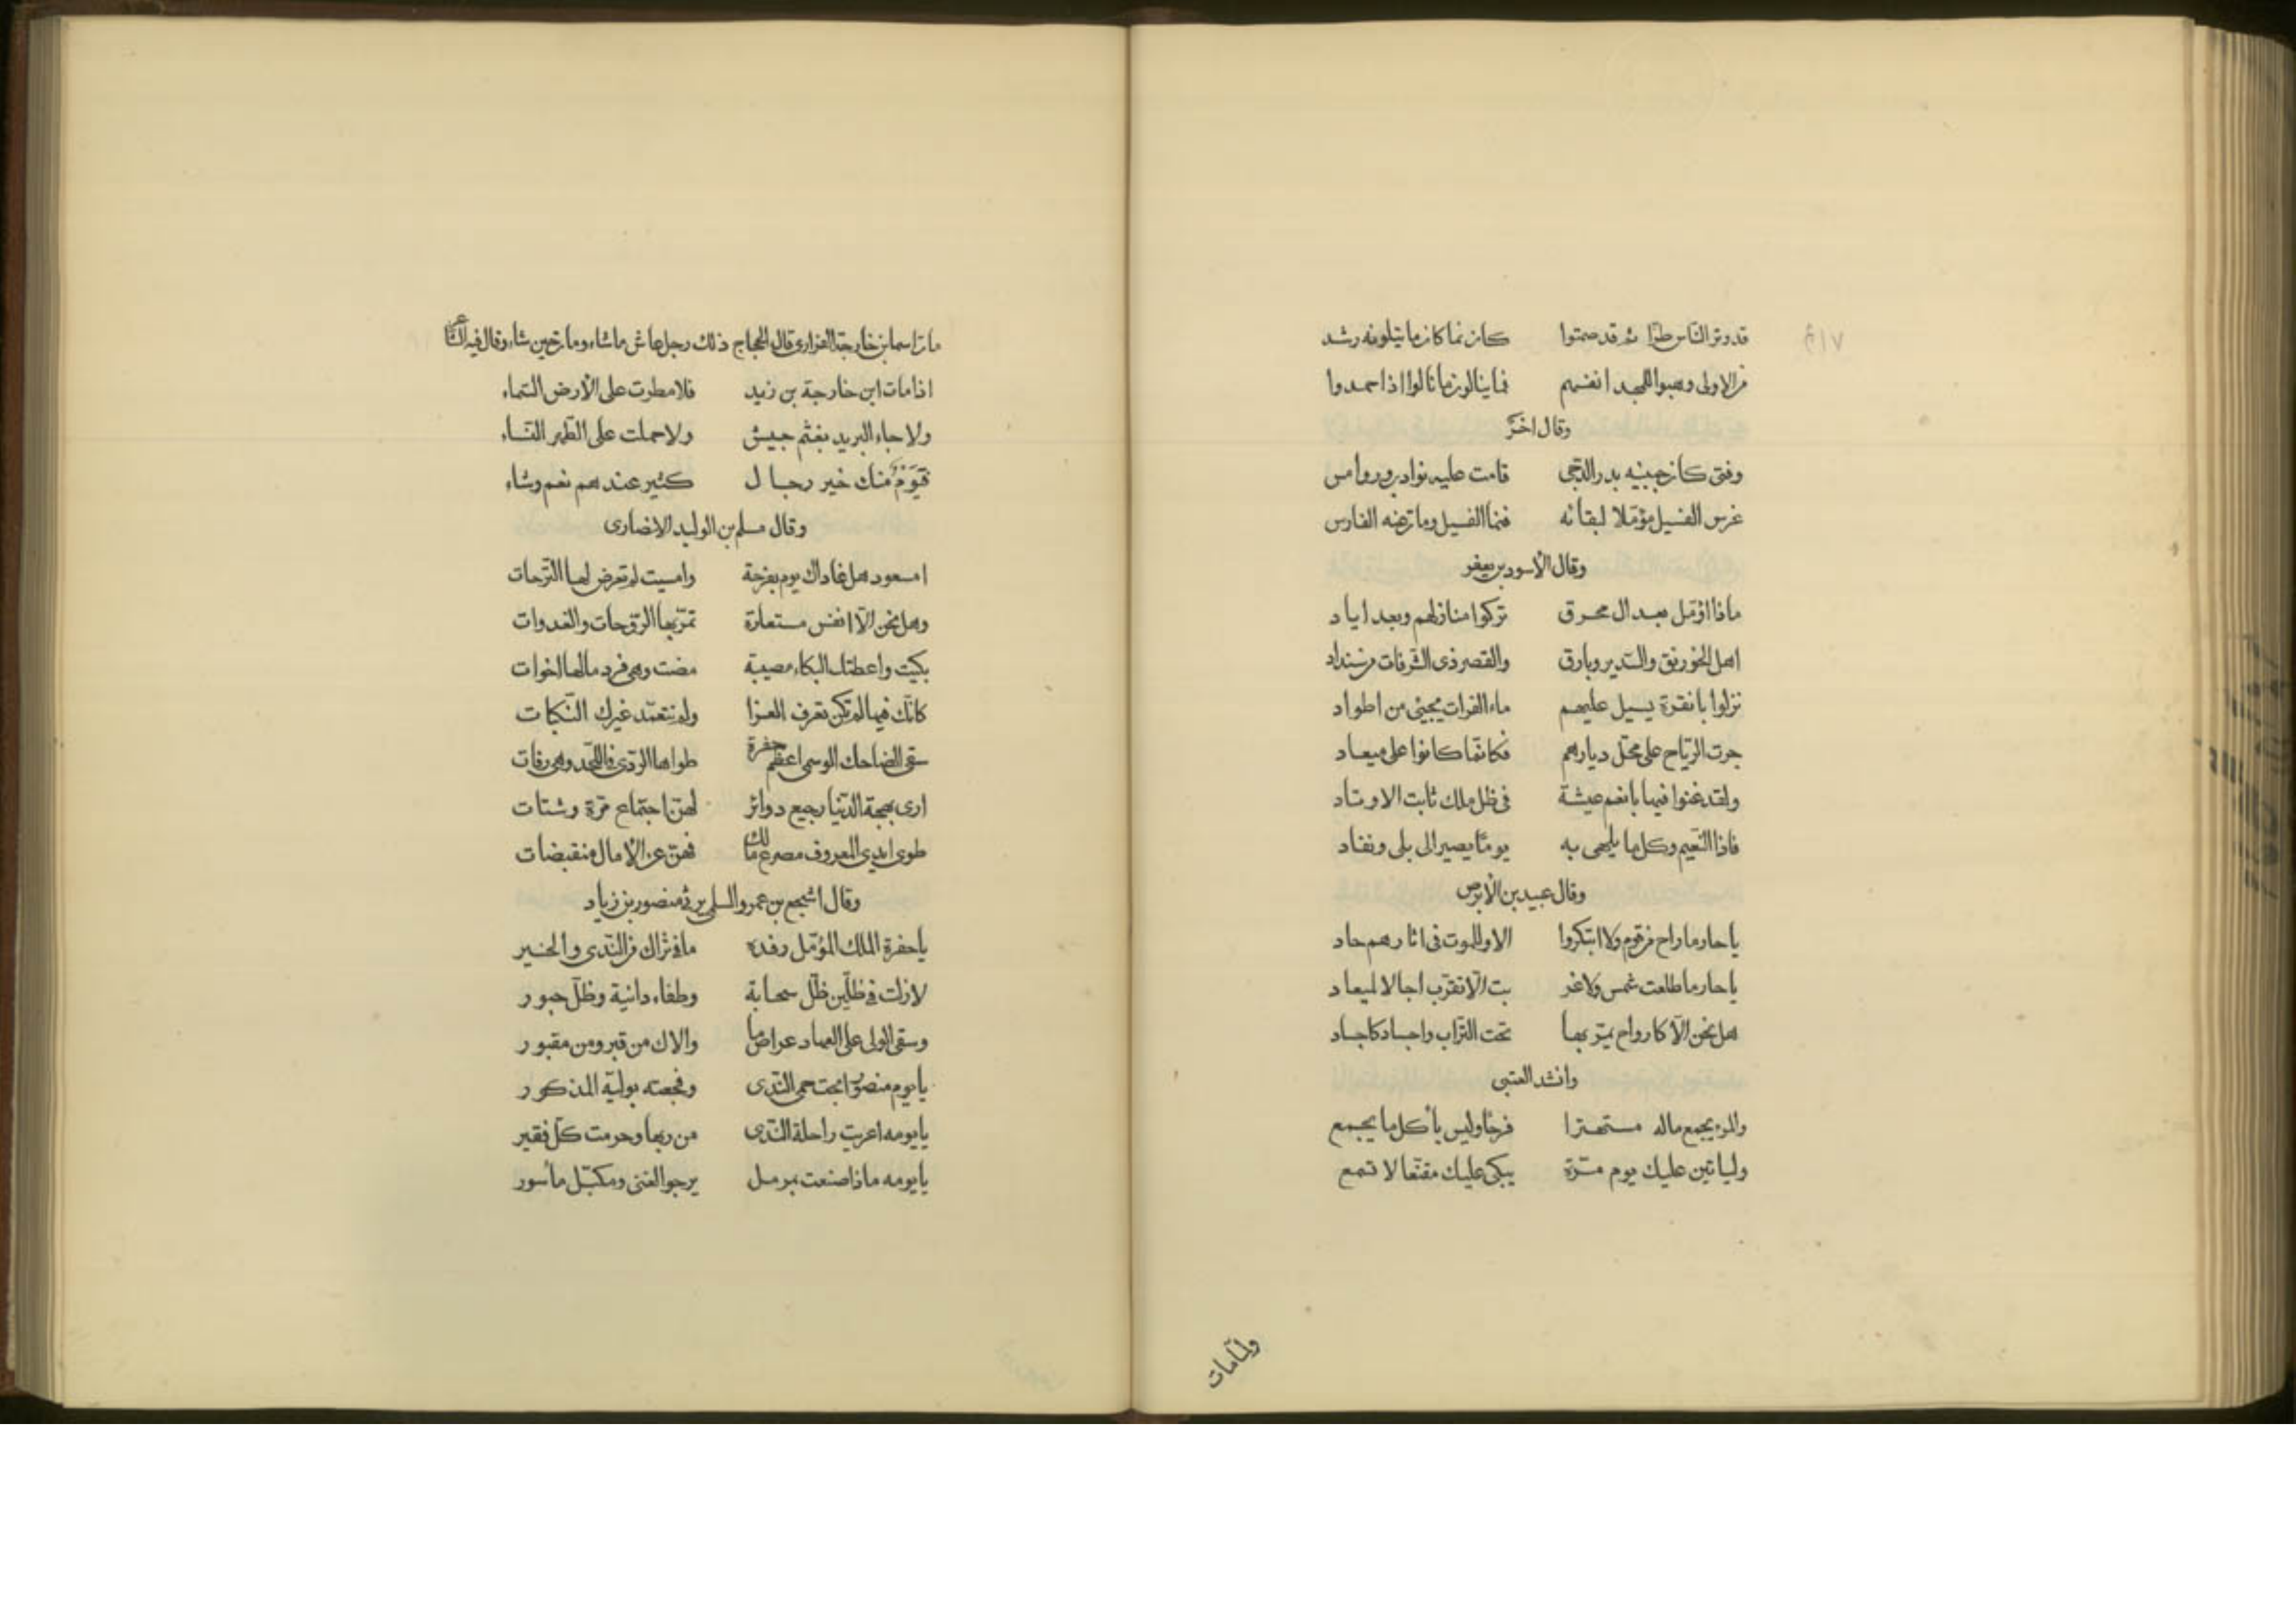 قد وتر الناس طرا ثم قد صمتوا كان نما كان ما يتلونه رشد
من الاولى وهبوا للمجد انفسهم فما ينالون ما نالوا اذا حمدوا
وقال اخر
وفتى كان جبينه بدر الدجى قامت عليه نوادب وروامس
غرس الفسيل مؤملا لبقائه فنما الفسيل ومات عنه الفارس
وقال الأسود بن يعفر
ماذا اؤمل بعد ال محرق تركوا منازلهم وبعد اياد
اهل الخورنق والسدير وبارق والقصر ذى الشرفات من سنداد
نزلوا بانقرة يسيل عليهم ماء الفرات يجيئ من اطواد
جرت الرياح على محل ديارهم فكانما كانوا على ميعاد
ولقد غنوا فيها بانعم عيشة فى ظل ملك ثابت الاوتاد
فاذا النعيم وكل ما يلهى به يوما يصير الى بلى ونفاد
وقال عبيد بن الأبرص
يا حار ما راح من قوم ولا ابتكروا الا وللموت فى اثارهم حاد
يا حار ما طلعت شمس ولا غر بت الا تقرب اجالا لميعاد
هل نحن الا كارواح يمر بها تحت التراب واجساد كاجساد
وانشد العتبى
والمرء يجمع ماله مستهترا فرحا وليس بأكل ما يجمع
وليأتين عليك يوم مرة يبكى عليك مقنعا لا تسمع
ولما مات
مات اسما بن خارجة الفزارى قال الحجاج ذلك رجل عاش ما شاء ومات حين شاء وقال فيه الشاعر
اذا مات ابن خارجة بن زيد فلا مطرت على الأرض السماء
ولا جاء البريد بغنم جيش ولا حملت على الطهر النساء
فيوم منك خير رجال كثير عندهم نعم وشاء
وقال مسلم بن الوليد الانصارى
امسعود هل غاداك يوم بفرحة وامسيت لم تعرض لها الترحات
وهل نحن الا انفس مستعارة تمر بها الروحات والغدوات
بكيت واعطتك البكاء مصيبة مضت وهى فرد ما لها اخوات
كانك فيها لم تكن تعرف العزا ولم تتعمد غيرك النكبات
سقى الضاحك الوسمى اعظم حفرة طواها الردى فى اللحد وهى رفات
ارى بهجة الدنيا رجيع دوائر لهن اجتماع مرة وشتات
طوى ايدى المعروف مصرع مالك فهن عن الأمال منقبضات
وقال اشجع بن عمرو السلمى يرثى منصور بن زياد
يا حفرة الملك المؤمل رفده ما فى ثراك من الندى والخير
لا زلت فى ظلين ظل سحابة وطفاء دانية وظل حبور
وسقى الولى على العهاد عراص ما والاك من قبر ومن مقبور
يا يوم منصور ابحت حمى الندى وفجعته بوليه المذكور
يا يومه اعريت راحلة الندى من ربها وحرمت كل فقير
يا يومه ماذا صنعت بمرمل يرجو الغنى ومكبل مأسور